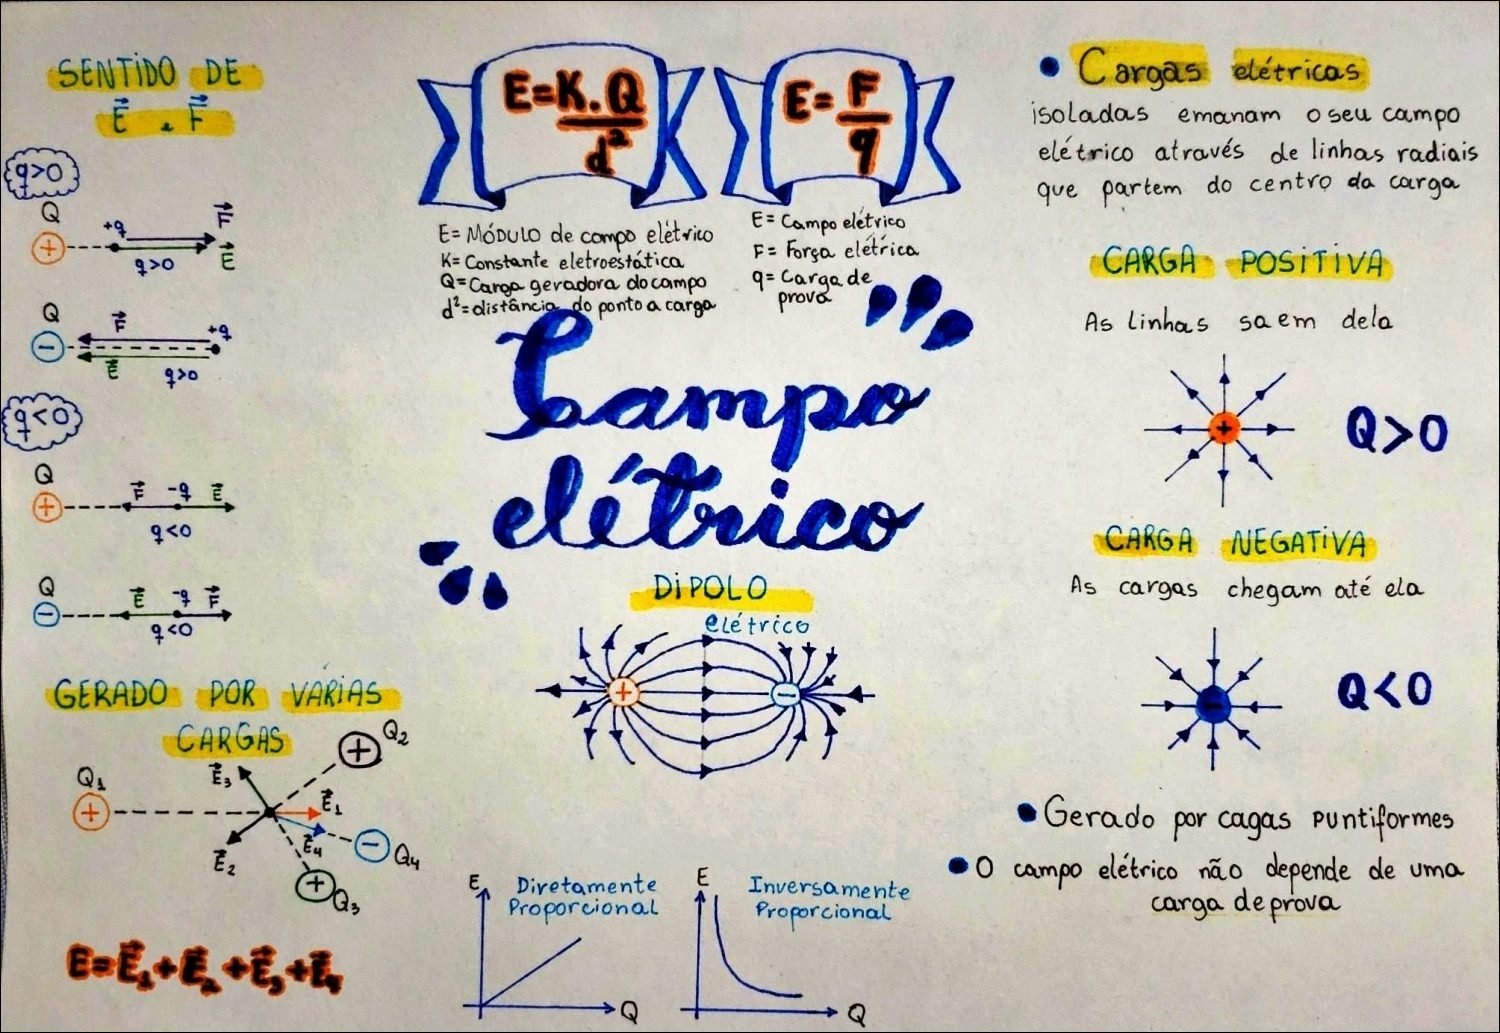 SENTIDO DE
E⃗ e F⃗
q>0
Q
+q
F⃗
+
q>0
E⃗
Q
F⃗
+q
−
E⃗
q>0
q<0
Q
F⃗ -q E⃗
+
q<0
Q
E⃗ -q F⃗
−
q<0
GERADO POR VÁRIAS
CARGAS
Q2
+
Q1
E⃗3
+
E⃗1
E⃗4
− Q4
E⃗2
+ Q3
E=E⃗1+E⃗2+E⃗3+E⃗4
E=K.Q
d²
E= Módulo de campo elétrico
K= Constante eletroestática
Q= Carga geradora do campo
d²= distância do ponto a carga
E=F
q
E= Campo elétrico
F= Força elétrica
q= Carga de
prova
Campo
elétrico
DIPOLO
elétrico
+ −
E
Diretamente
Proporcional
Q
E
Inversamente
Proporcional
Q
• Cargas elétricas
isoladas emanam o seu campo
elétrico através de linhas radiais
que partem do centro da carga
CARGA POSITIVA
As linhas saem dela
+
Q>0
CARGA NEGATIVA
As cargas chegam até ela
−
Q<0
• Gerado por cagas puntiformes
• O campo elétrico não depende de uma
carga de prova